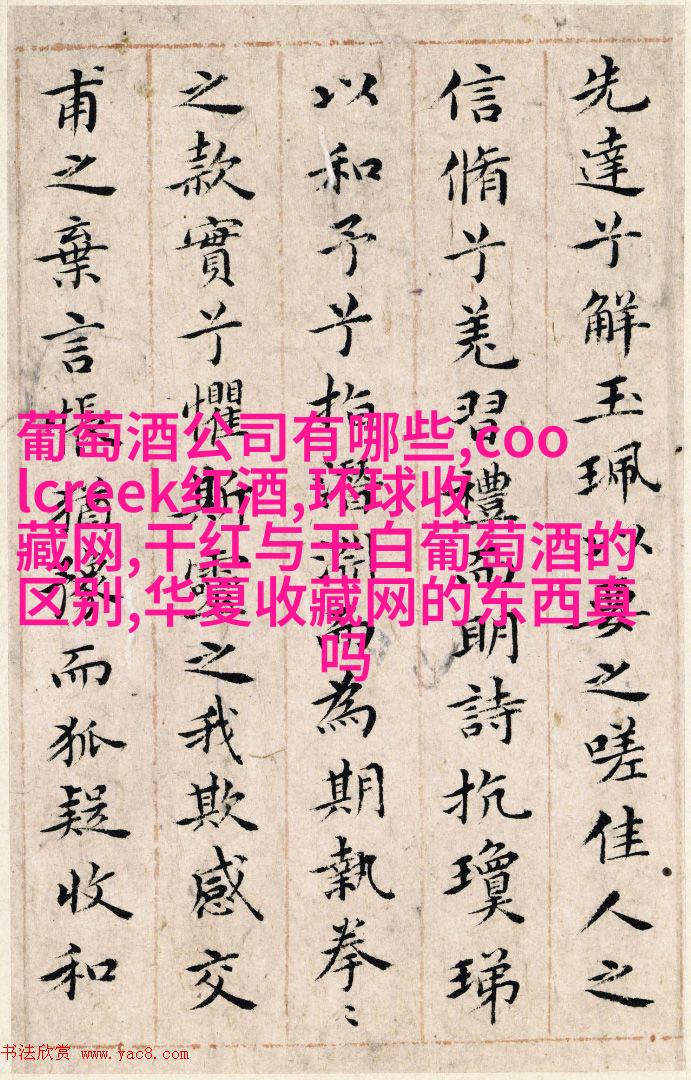 先達兮解玉珮以要之嗟佳人之
信脩兮羌習禮而明詩抗瓊珶
以和予兮指潛淵而為期執拳〻
之款實兮懼斯靈之我欺感交
甫之棄言悵猶豫而狐疑收和
葡萄酒公司有哪些,coo
lcreek红酒,环球收
藏网,干红与干白葡萄酒的
区别,华夏收藏网的东西真
吗
书法欣赏 www.yac8.com